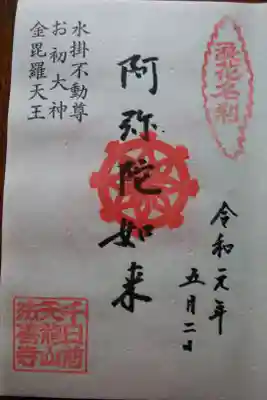 浪花名刹
令和元年
五月二日
阿弥陀如来
水掛不動尊
お初大神
金毘羅天王
千日前
天龍山
法善寺